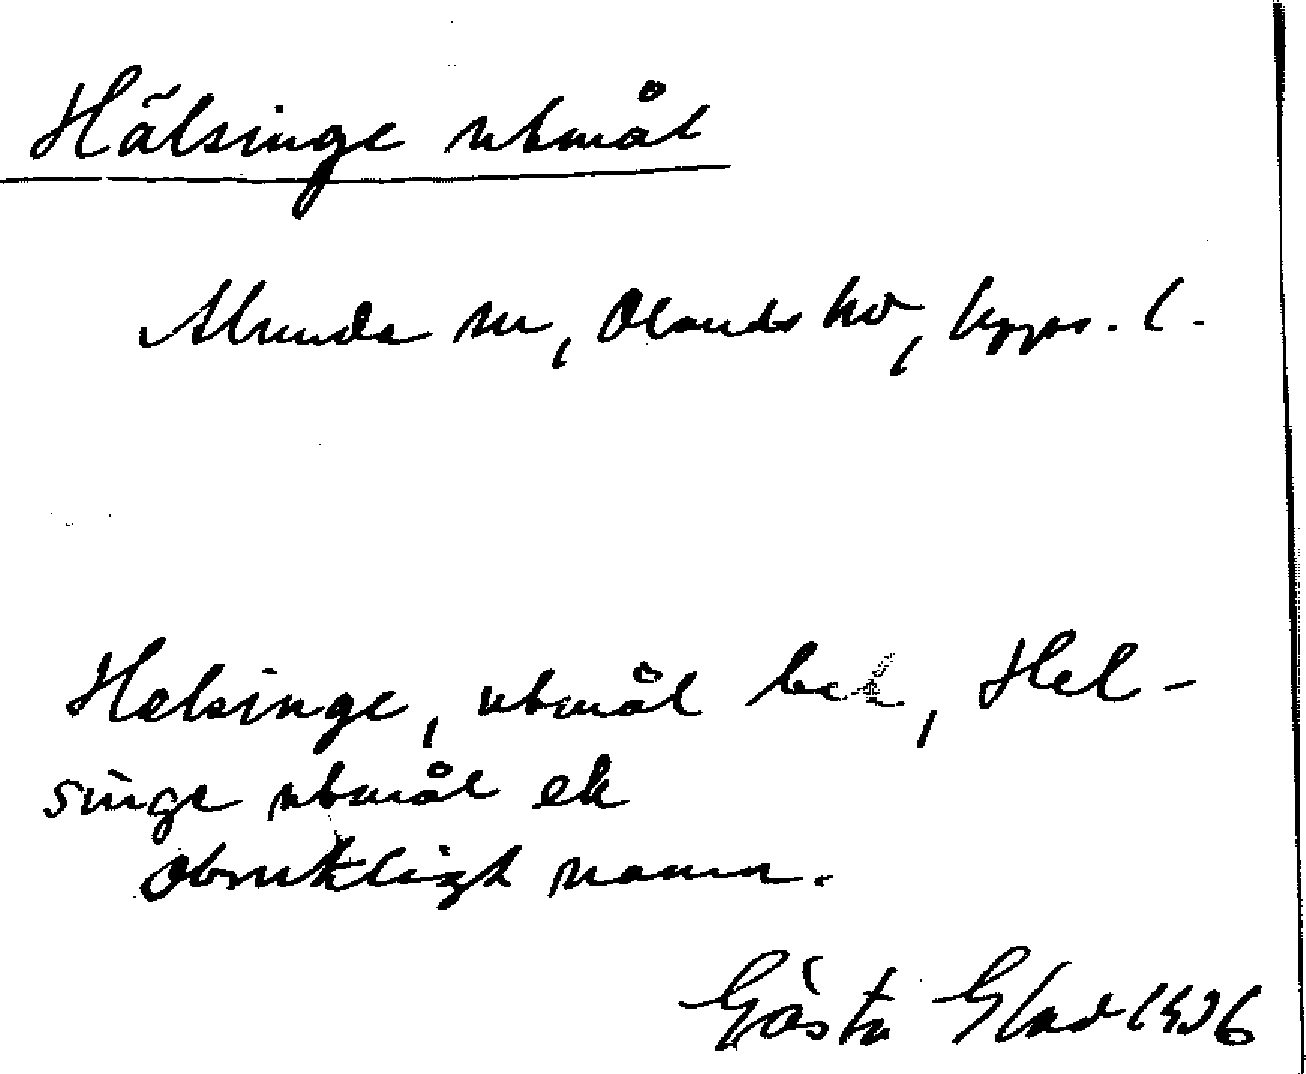 Hälsinge utmål
Alunda sn, Olands hd, Upps. l.
Helsinge, utmål bek, Hel-
singe utmål ek
obrukligt namn.
Gösta Glad 1936